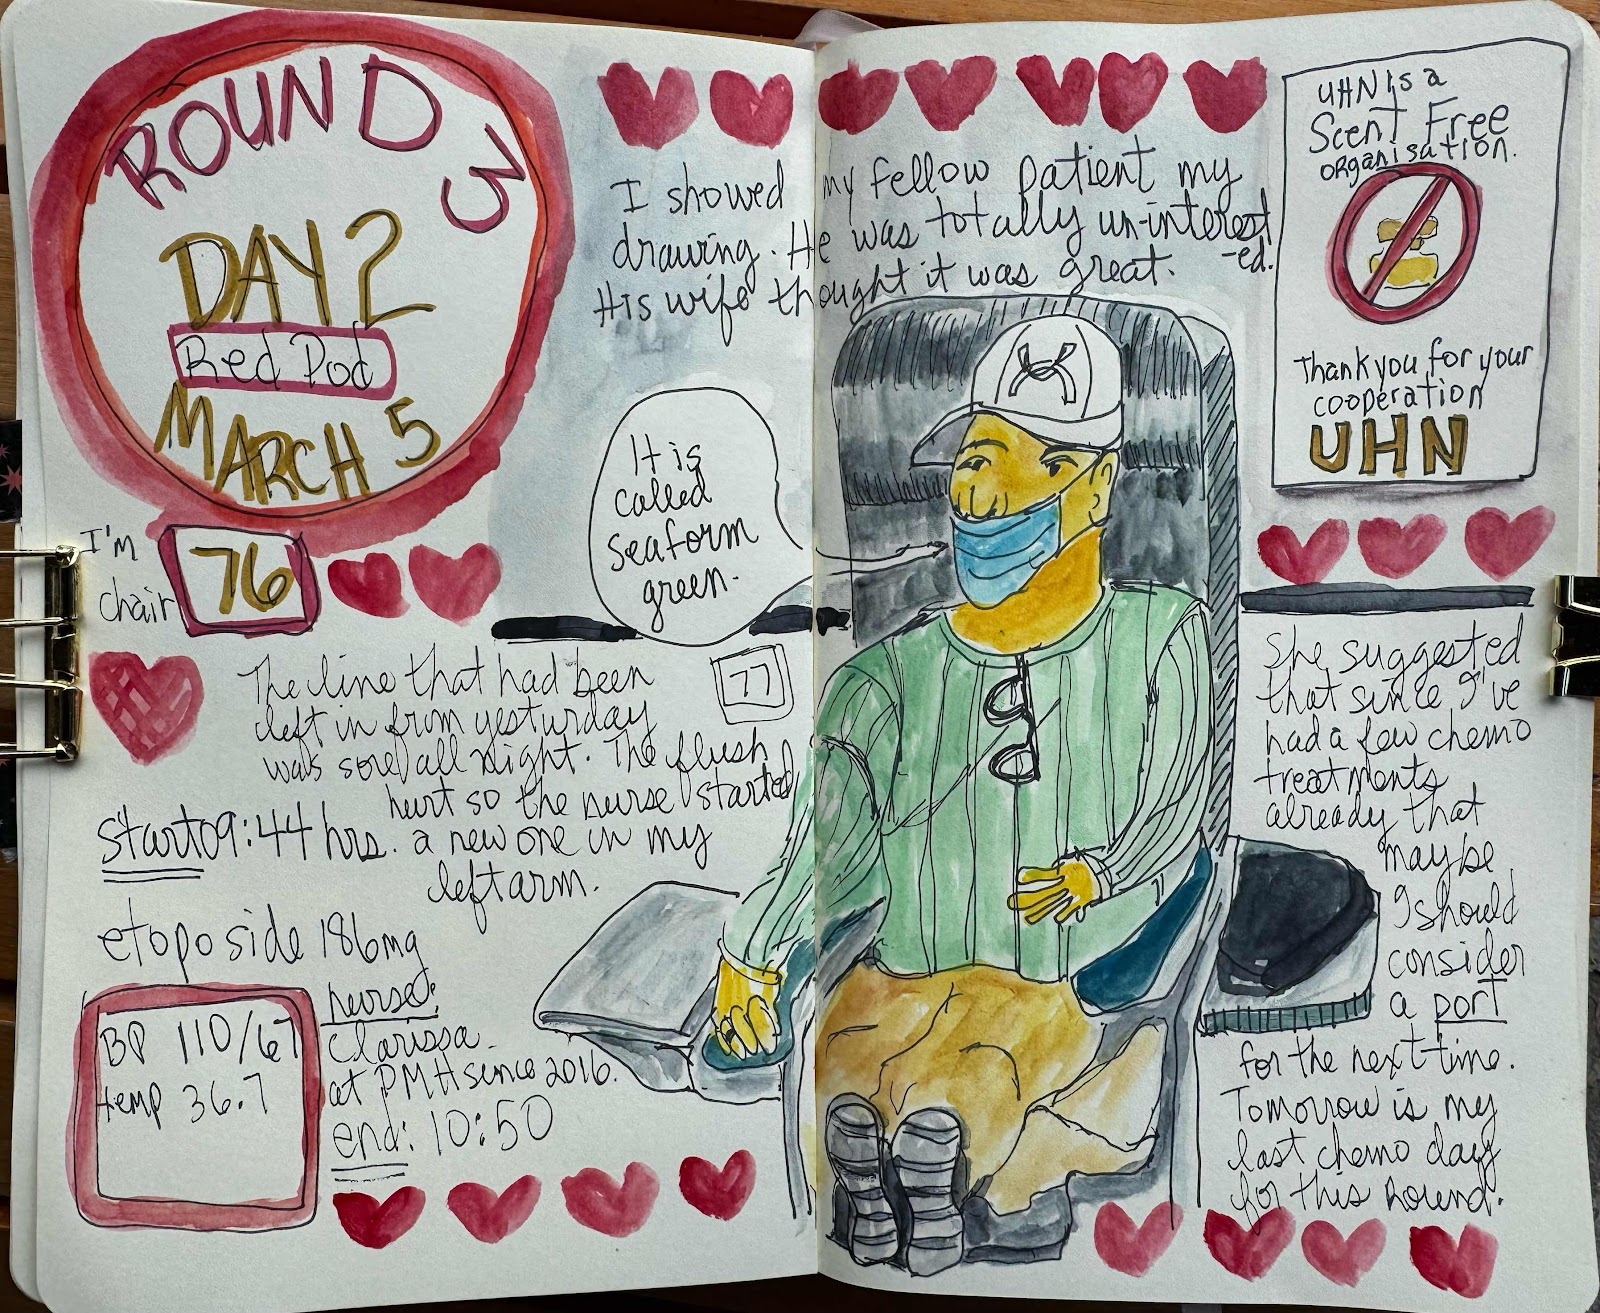 ROUND 3
DAY 2
Red Pod
MARCH 5
I'm
chair
76
I showed my fellow patient my
drawing. He was totally un-interest
-ed.
His wife thought it was great.
UHN is a
Scent Free
organisation.
Thank you for your
cooperation
UHN
It is
called
seaform
green.
77
The line that had been
left in from yesturday
was sore all night. The flush
hurt so the nurse started
a new one in my
left arm.
start 09:44 hrs.
etoposide 186mg
BP 110/67
temp 36.7
nurse:
Clarissa
at PMH since 2016.
end: 10:50
She suggested
that since I've
had a few chemo
treatments
already that
maybe
I should
consider
a port
for the next time.
Tomorrow is my
last chemo day
for this Round.